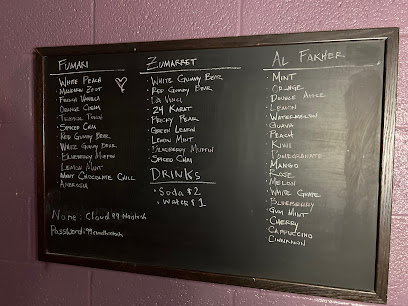 FUMARI
WHITE PEACH
MANDARIN ZEST
FRENCH VANILLA
ORANGE CREAM
TROPICAL PUNCH
SPICED CHAI
RED GUMMY BEAR
WHITE GUMMY BEAR
BLUEBERRY MUFFIN
LEMON MINT
MINT CHOCOLATE CHILL
AMBROSIA
Name: Cloud 99 Hookah
Password:
ZUMARRET
· WHITE GUMMY BEAR
· RED GUMMY BEAR
· DA VINCI
· 24 KARAT
· PRICKY PEAR
· GREEN LEMON
· LEMON MINT
· BLUEBERRY MUFFIN
· SPICED CHAI
DRINKS
· Soda $2
· Water $1
AL FAKHER
· MINT
· ORANGE
· DOUBLE APPLE
· LEMON
· WATERMELON
· GUAVA
· PEACH
· KIWI
· POMEGRANATE
· MANGO
· ROSE
· MELON
· WHITE GRAPE
· BLUEBERRY
· GUM MINT
· CHERRY
· CAPPUCCINO
· CINNAMON